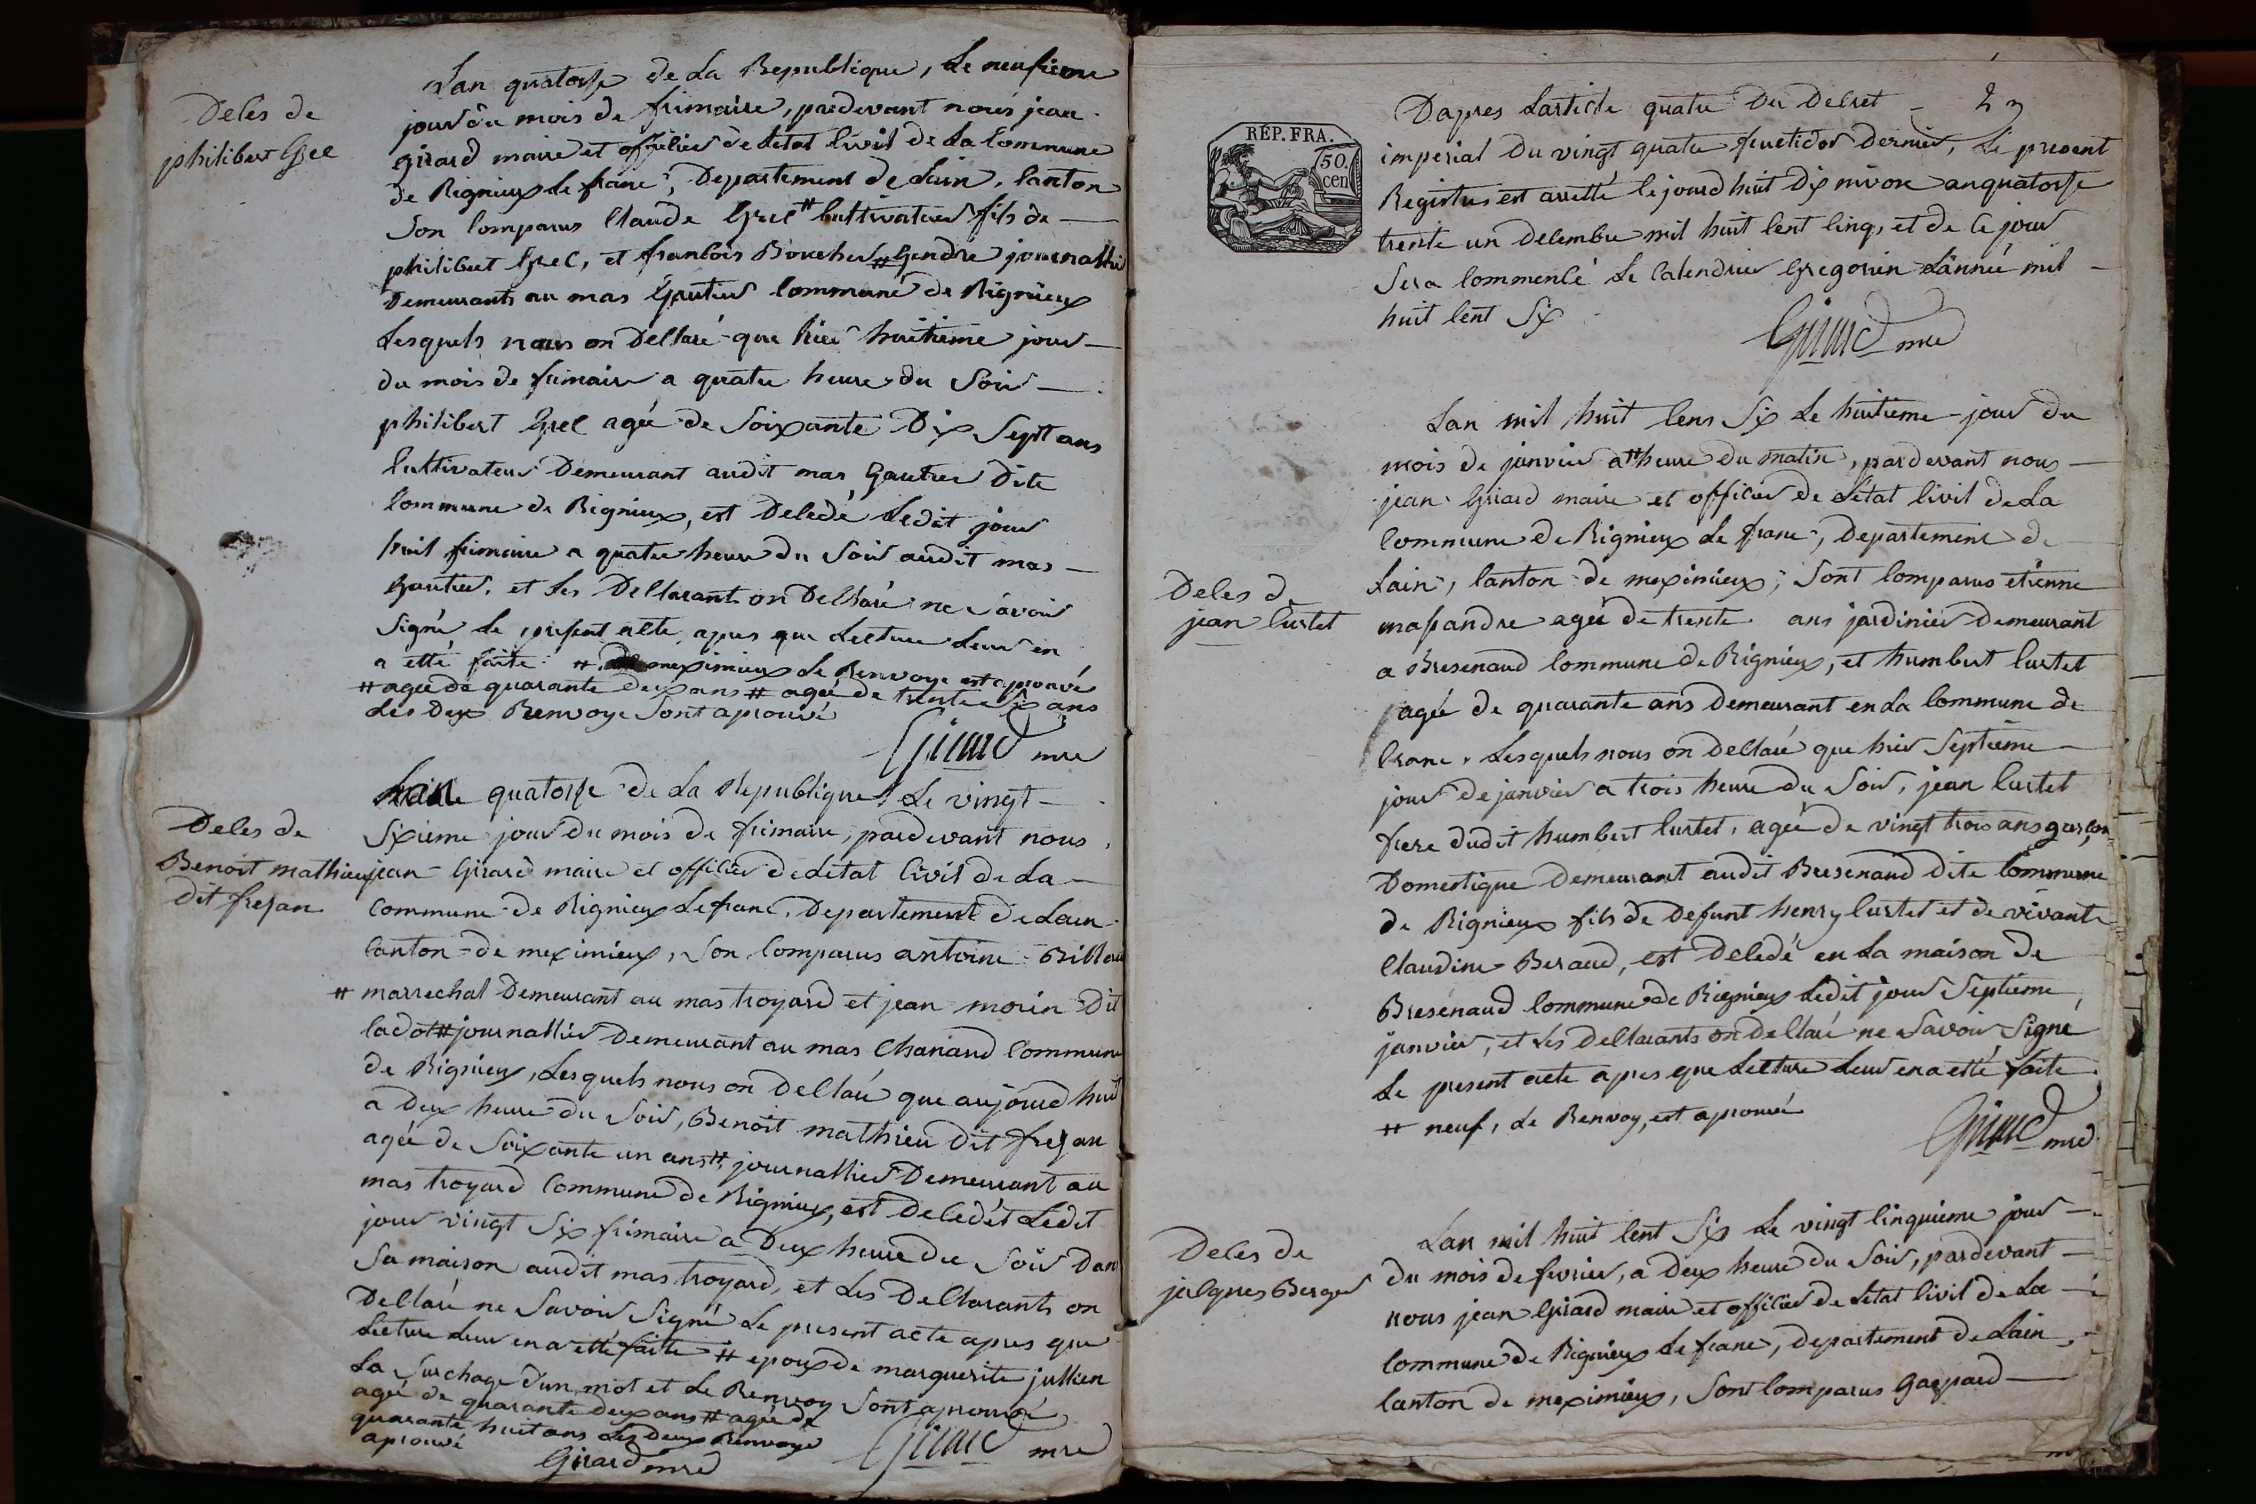 Lan quatorse de La Republique, Le neufieme
Deces de
philibert Grel
jour du mois de frimaire, pardevant nous jean
girard maire et officier de Letat Civil de La Commune
de Rignieux Le franc, Departement de Lain, Canton
Son Comparus Claude Grel # Cultivateur fils de
philibert Grel, et francois Boucher # Gendre journallier
Demeurants au mas Gautier Commune de Rignieux
Lesquels nous on Declaré que hier huitieme jour
du mois de frimaire a quatre heure du Soir
philibert Grel agée de Soixante Dix Sept ans
Cultivateur Demeurant audit mas Gautier Dite
Commune de Rignieux, est Decedé Ledit jour
huit frimaire a quatre heure du Soir audit mas
Gautier, et Les Declarant on Declaré ne Savoir
Signé Le present acte, apres que Lecture Leur en
a etté faite # meximieux Le Renvoye est aprouvé
# agée de quarante Deux ans # agée de trente Six ans
Les Deux Renvoye Sont aprouvé
Girard mre
Lan quatorse de La Republique Le vingt
Deces de
Benoit mathieu
dit frejan
Sixieme jour du mois de frimaire, pardevant nous
jean Girard maire et officier de Letat Civil de La
Commune de Rignieux Lefranc, Departement de Lain
Canton de meximieux, Son Comparus antoine Billoud
# marrechal Demeurant au mas troyard et jean morin Dit
Cadot # journallier Demeurant au mas Chanand Commune
de Rignieux, Lesquels nous on Declaré que aujourd huit
a Deux heure du Soir, Benoit mathieu Dit frejan
agée de Soixante un ans # journallier Demeurant au
mas troyard Commune de Rignieux, est Decedét Ledit
jour vingt Six frimaire a Deux heure du Soir Dan
Sa maison audit mas troyard, et Les Declarants on
Declaré ne Savoir Signé Le present acte apres que
Lecture Leur en a etté faite # epoux de marguerite jullien
La Surchage d'un mot et Le Renvoy Sont aprouvé
agée de quarante deux ans # agée de
quarante huit ans Les Deux Renvoye
aprouvé
Girard mre
Girard mre
23
RÉP. FRA.
50.
cen
Dapres Larticle quatre Du Decret
imperial Du vingt quatre fructidor Dernier, Le present
Registres est arretté Cejourd huit Dix nivose an quatorse
trente un Decembre mil huit Cent Cinq, et de Ce jour
Sera Commencé Le Calendrier Gregorien Lannée mil
huit Cent Six
Girard mre
Lan mil huit Cens Six Le huitieme jour du
mois de janvier a # heure du matin, pardevant nous
jean Girard maire et officier de Letat Civil de La
Commune de Rignieux Le franc, Departement de
Deces de
jean Curtet
Lain, Canton de meximieux, Sont Comparus etienne
mapandre agée de trente ans jardinier Demeurant
a Bresenaud Commune de Rignieux, et humbert Curtet
agée de quarante ans Demeurant en La Commune de
Crane, Lesquels nous on Declaré que hier Septieme
jour de janvier a trois heure du Soir, jean Curtet
frere dudit humbert Curtet, agée de vingt trois ans garçon
Domestique Demeurant audit Bresenaud dite Commune
de Rignieux fils de Defunt henry Curtet et de vivante
Claudine Beraud, est Decedé en La maison de
Bresenaud Commune de Rignieux Ledit jour Septieme
janvier, et Les Declarants on Declaré ne Savoir Signé
Le present acte apres que Lecture Leur en a etté faite
# neuf, Le Renvoy, est aprouvé
Girard mre
Lan mil huit Cent Six Le vingt Cinquieme jour
Deces de
jacques Berger
du mois de fevrier, a Deux heure du Soir, pardevant
nous jean Girard maire et officier de Letat Civil de La
Commune de Rignieux Le franc, departement de Lain,
Canton de meximieux, Sont Comparus Gaspard